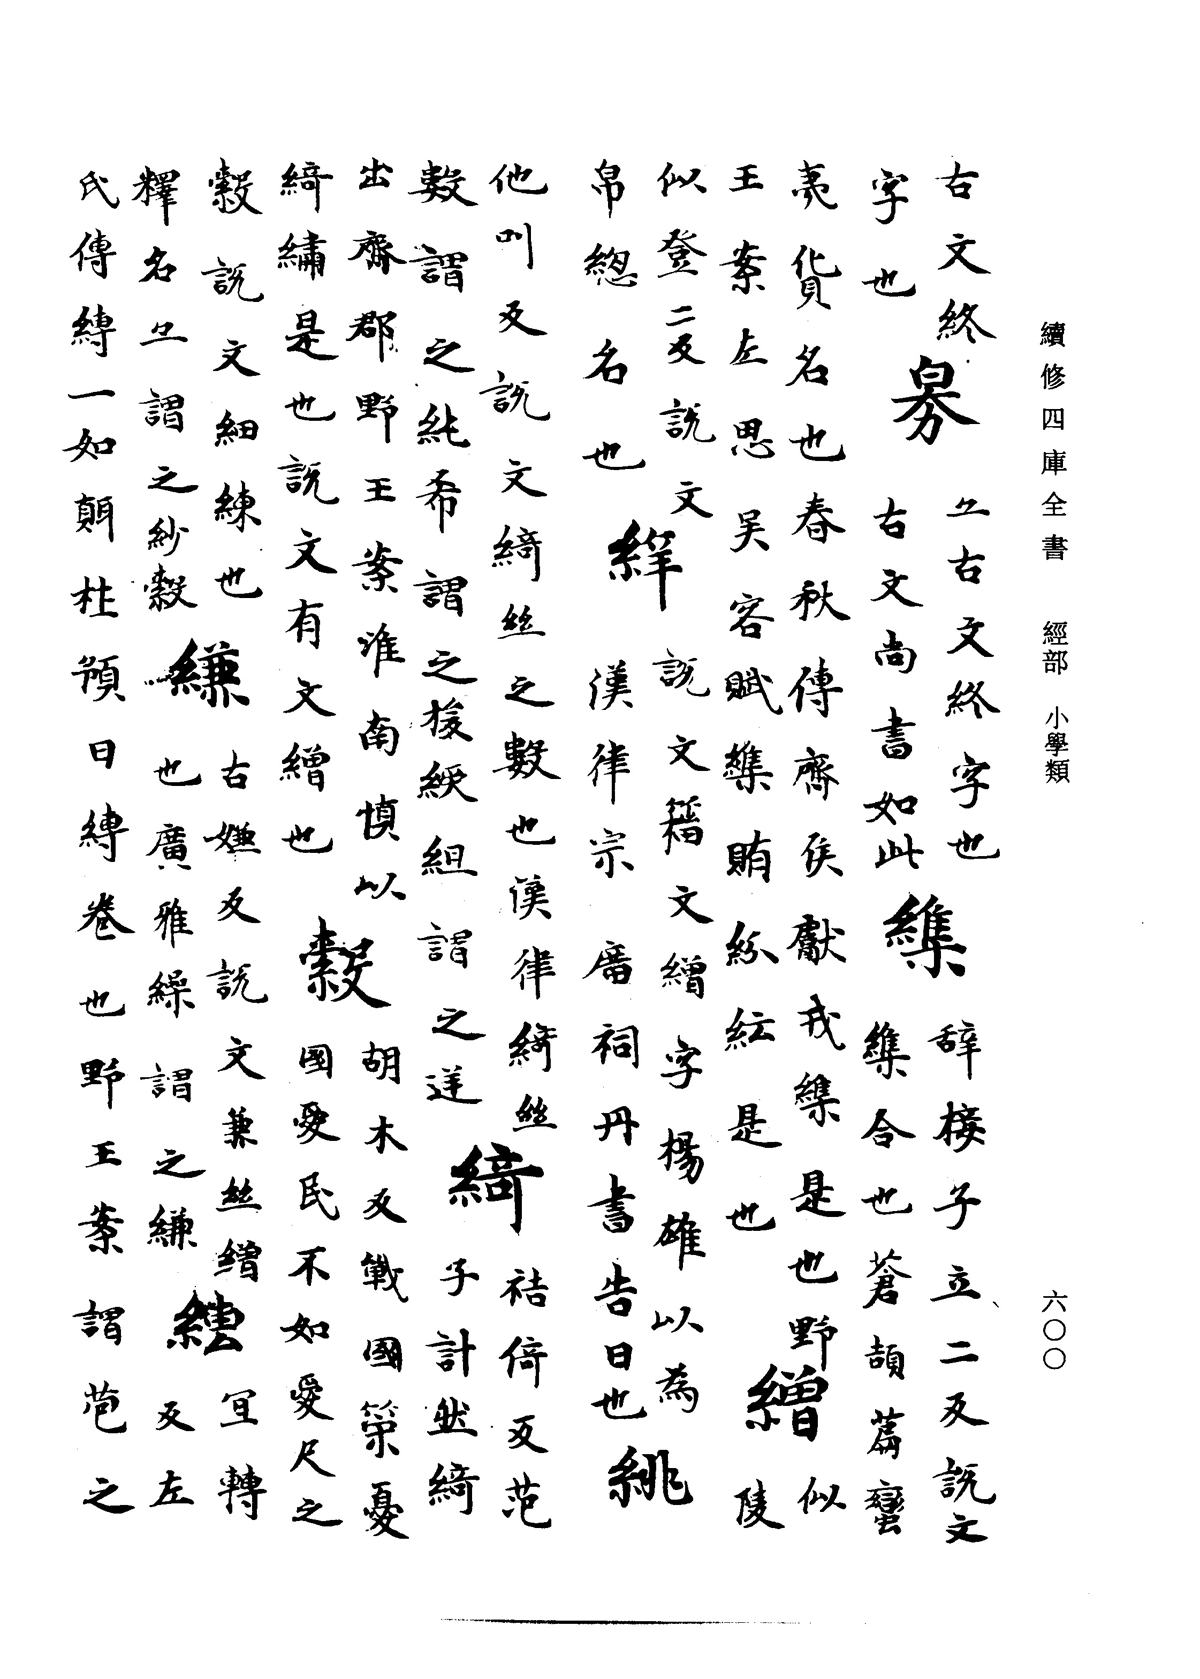 續修四庫全書 經部 小學類
六〇〇
古文終
字也
㒸
亠古文終字也
古文尚書如此
䌖
辭接子立二反說文
䌖合也蒼頡篇蠻
夷貨名也春秋傳齊侯獻戎䌖是也野
王案左思吳客賦䌖賄紛紜是也
繒
似
陵
似登二反說文
帛總名也
縡
說文籀文繒字楊雄以為
漢律宗廟祠丹書告日也
絩
他叫反說文綺絲之數也漢律綺絲
數謂之純希謂之㨲綬組謂之
綺
袪倚反范
子計然綺
出齊郡野王案淮南慎以
綺繡是也說文有文繒也
縠
胡木反戰國策憂
國愛民不如愛尺之
縠說文細練也
釋名亠謂之紗縠
縑
古嫌反說文兼絲繒
也廣雅繰謂之縑
縳
冝轉
反左
氏傳縳一如顛柱預曰縳卷也野王案謂苞之